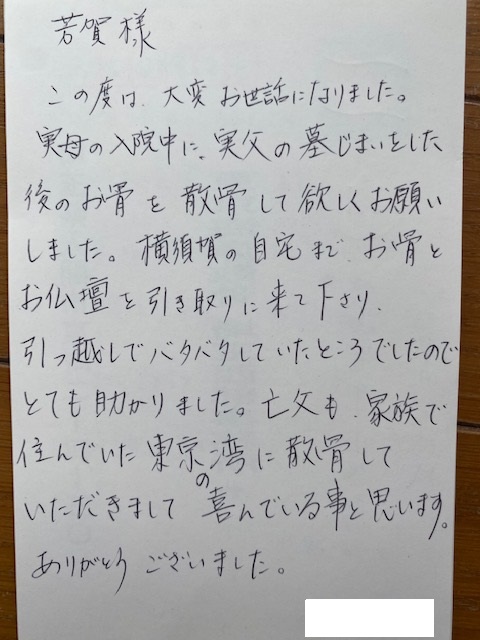 芳賀様
この度は、大変お世話になりました。
実母の入院中に、実父の墓じまいをした
後のお骨を散骨して欲しくお願い
しました。横須賀の自宅まで、お骨と
お仏壇を引き取りに来て下さり、
引っ越しでバタバタしていたところでしたので
とても助かりました。亡父も、家族で
住んでいた東京湾に散骨して
いただきまして の喜んでいる事と思います。
ありがとうございました。